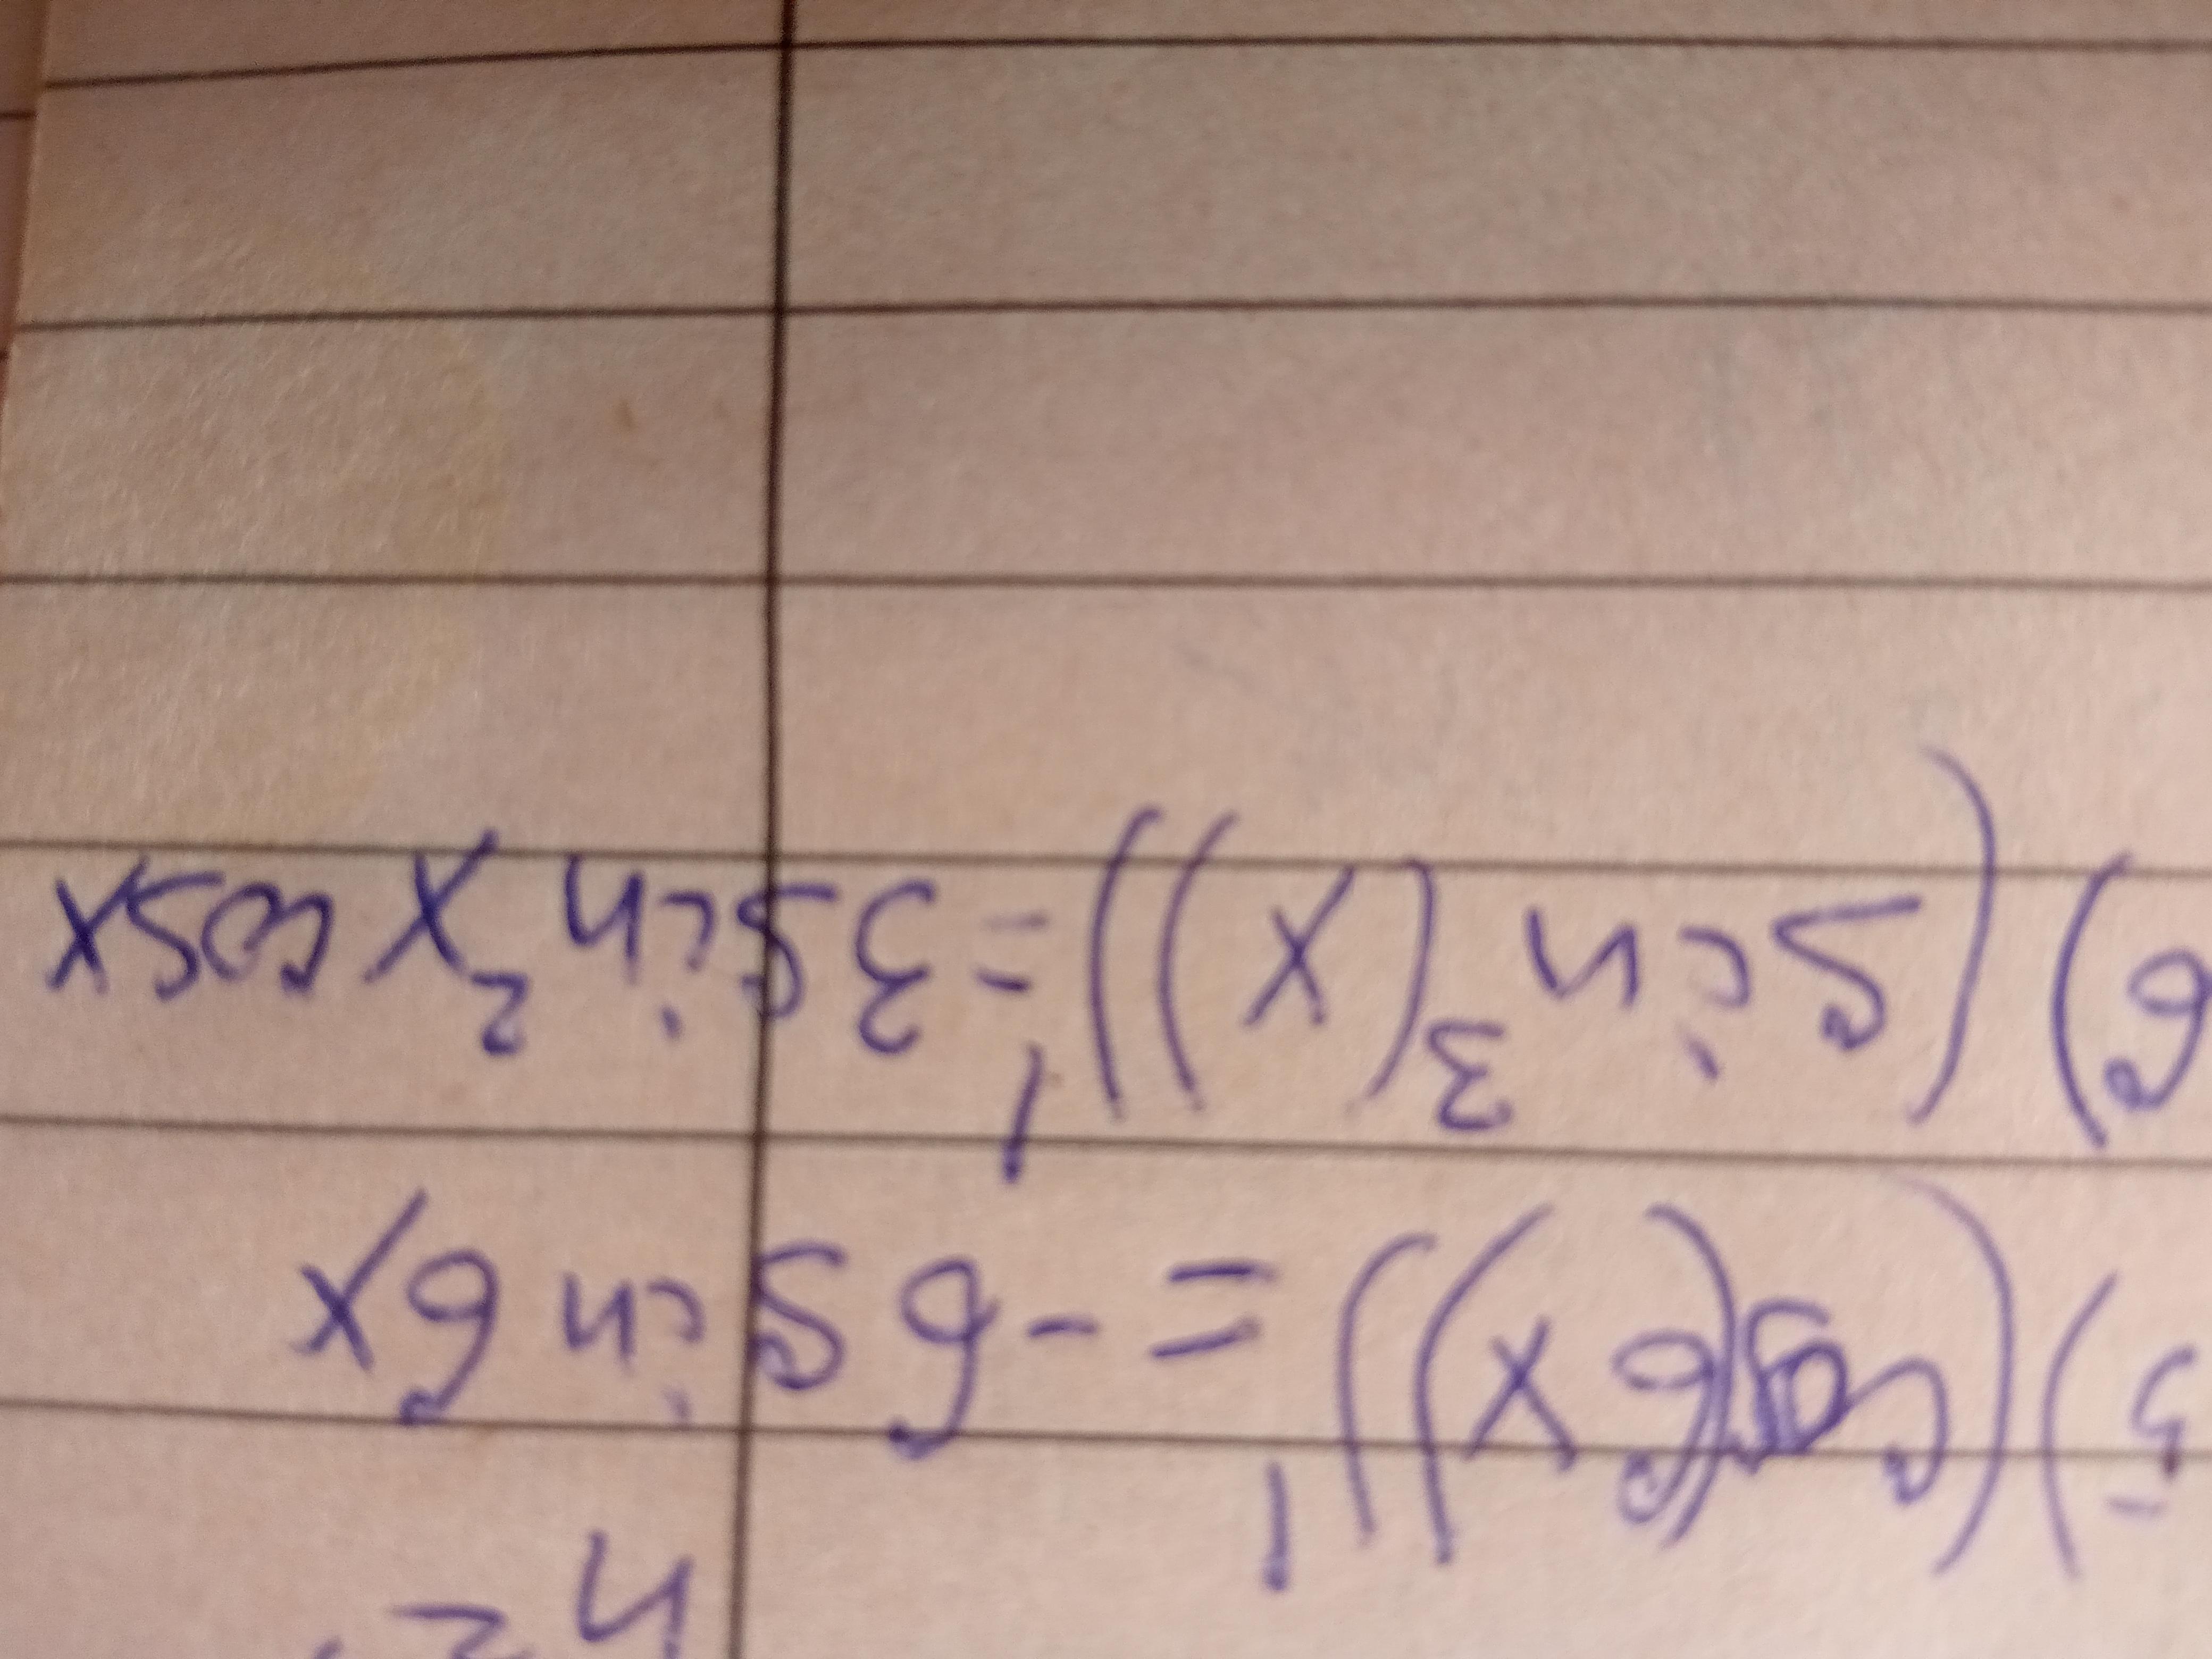 5) (cos(6x))' = -6 sin 6x
6) (sin³(x))' = 3 sin²x cosx